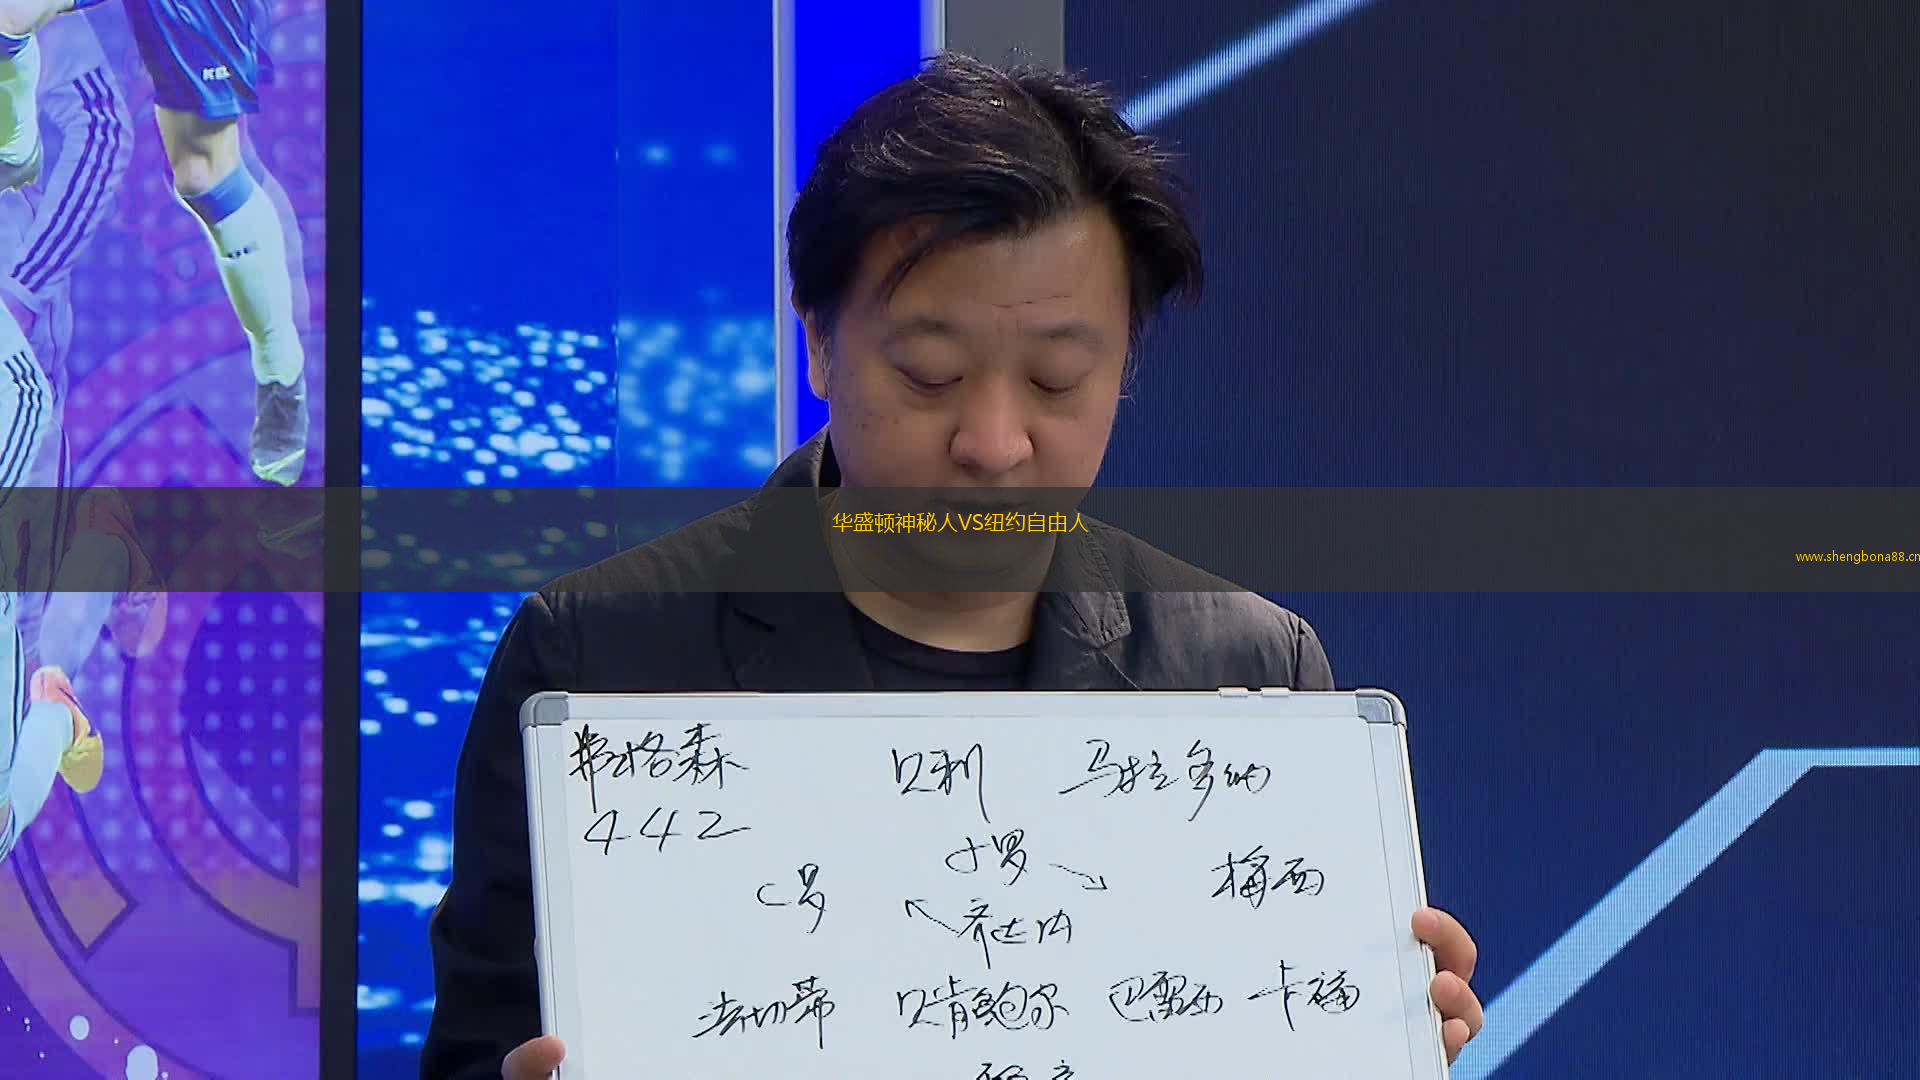 KEL
华盛顿神秘人VS纽约自由人
www.shengbona88.cn
弗格森 贝利 马拉多纳
442
小罗
C罗 梅西
齐达内
法切蒂 贝肯鲍尔 巴雷西 卡福